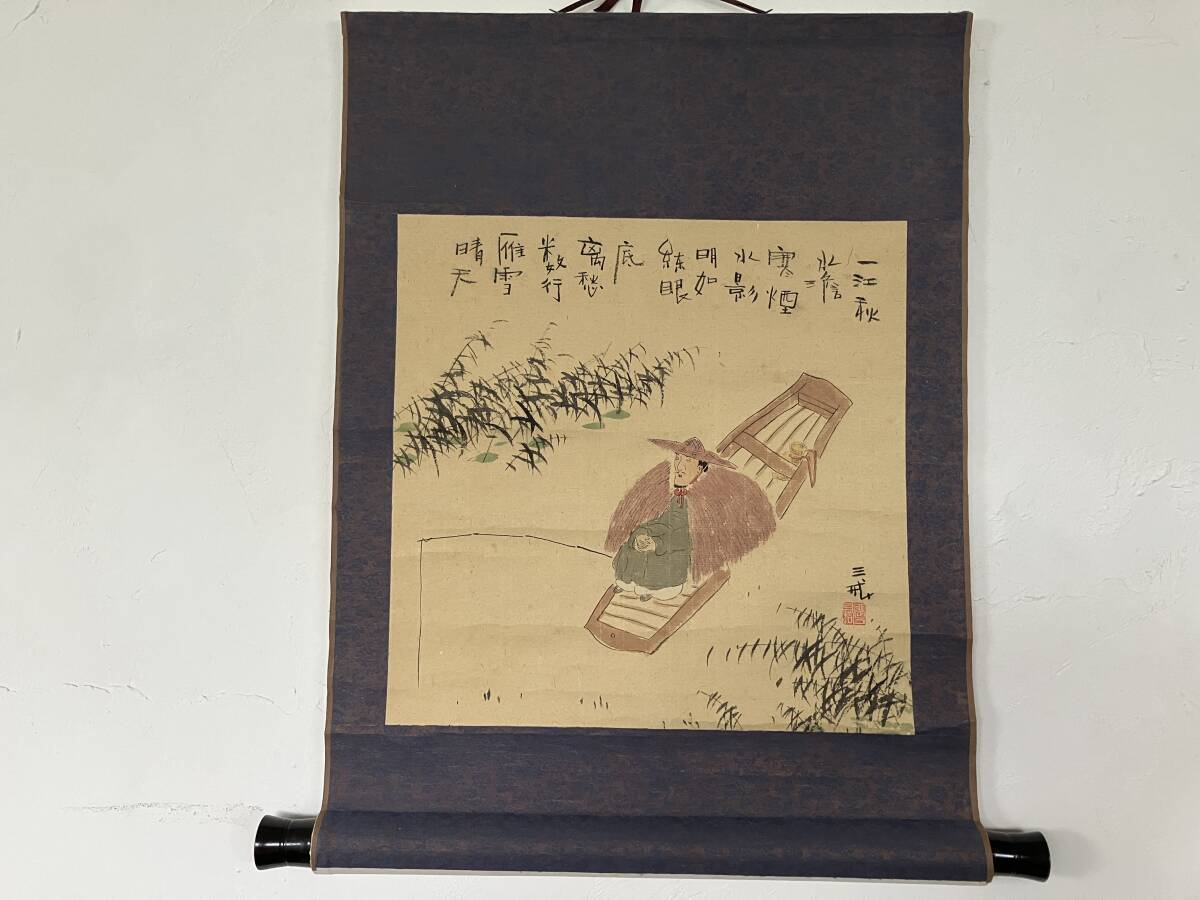 一江秋
水澹
寒煙
水影
明如
練眼
底
离愁
数行
雁雪
晴天
三戒